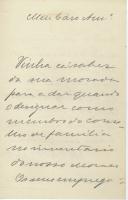 Meu Caro Am.º
Venha cá saber
da sua morada
para a dar quando
o designar como
membro do conse-
lho de familia
no inventario
do nosso Moraes